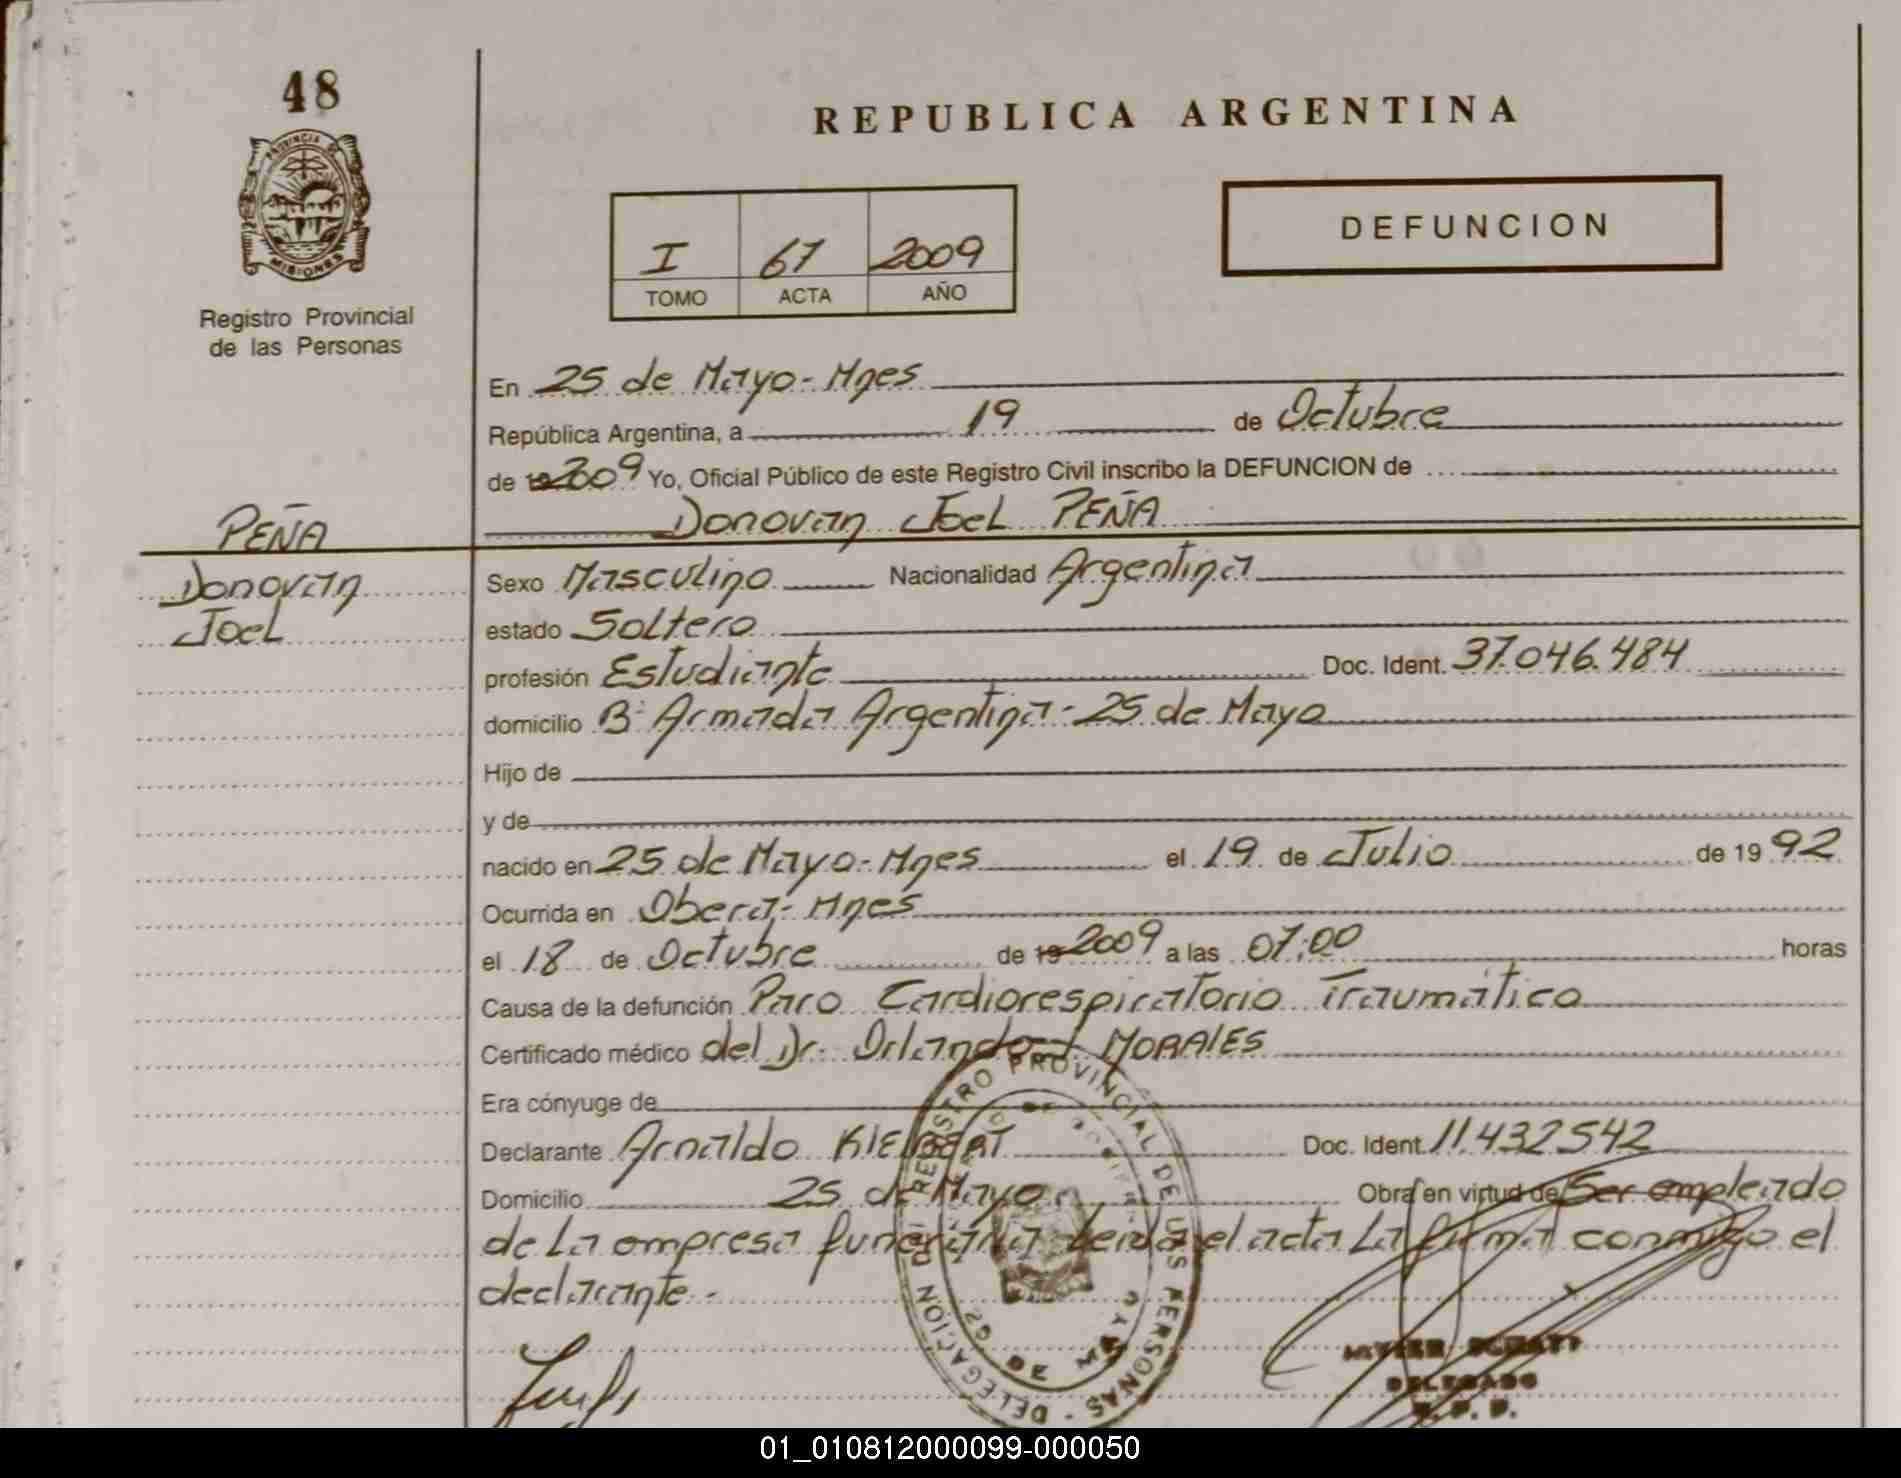 48
REPUBLICA ARGENTINA
PROVINCIA DE
MISIONES
DEFUNCION
I 67 2009
TOMO ACTA AÑO
Registro Provincial
de las Personas
En 25 de Mayo - Mnes
República Argentina, a 19 de Octubre
de 2009 Yo, Oficial Público de este Registro Civil inscribo la DEFUNCION de
Donovan Joel PEÑA
PEÑA
Donovan
Joel
Sexo Masculino Nacionalidad Argentina
estado Soltero
profesión Estudiante Doc. Ident. 37.046.484
domicilio Bº Armada Argentina - 25 de Mayo
Hijo de
y de
nacido en 25 de Mayo - Mnes el 19 de Julio de 19 92
Ocurrida en Oberá - Mnes
el 18 de Octubre de 19 2009 a las 07:00 horas
Causa de la defunción Paro Cardiorespiratorio Traumático
Certificado médico del Dr. Orlando J. MORALES
Era cónyuge de
Declarante Arnaldo Doc. Ident. 11.432542
Domicilio 25 de Mayo Obra en virtud de Ser empleado
de la empresa funeraria Leida el acta La firma conmigo el
declarante -
REGISTRO PROVINCIAL DE LAS PERSONAS - DELEGACION
25 DE MAYO
DELEGADO
R. P. P.
01_010812000099-000050